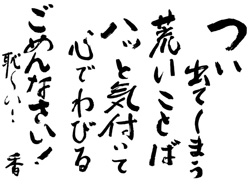 つい
出てしまう
荒いことば
ハッと気付いて
心でわびる
ごめんなさい!
恥〜い!
香